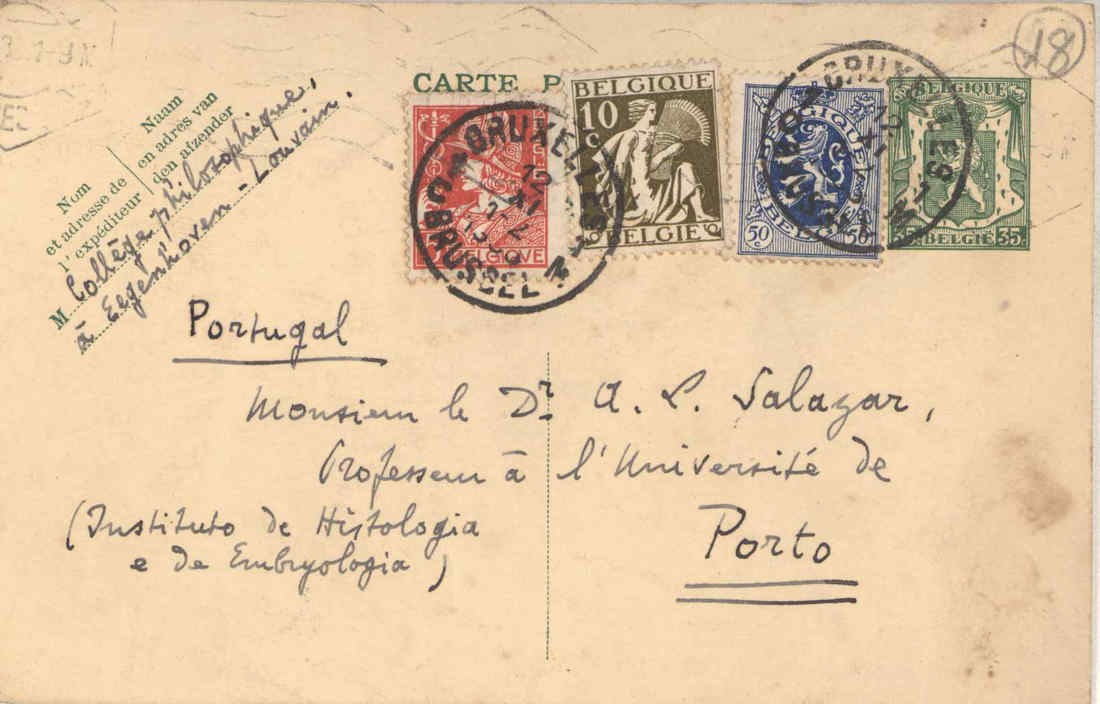 18
CARTE P
BELGIQUE
10
c
BELGIE
BELGIQUE
50
c
50
BELGIE
BELGIQUE
35
BELGIË
35
BRUXELLES
12
XI
12
BRUSSEL
BRUXEL
12
XI
Nom
et adresse de
l'expéditeur
Naam
en adres van
den afzender
M Collège philosophique,
à Eegenhoven - Louvain.
Portugal
Monsieur le Dr A. L. Salazar,
Professeur à l'Université de
Porto
(Instituto de Histologia
e de Embryologia)